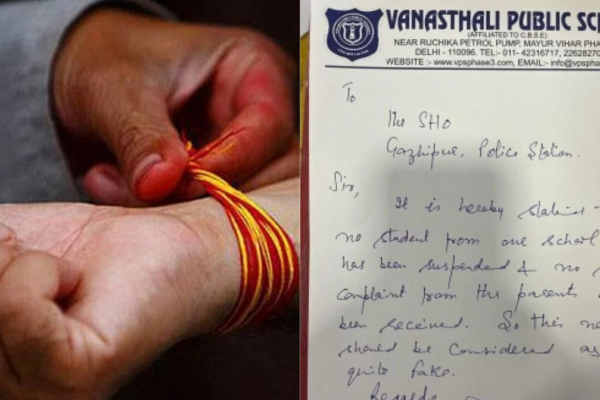 VANASTHALI PUBLIC SC
(AFFILIATED TO C.B.S.E)
NEAR RUCHIKA PETROL PUMP, MAYUR VIHAR PHA
DELHI - 110096. TEL:- 011- 42316717, 22628270
WEBSITE :- www.vpsphase3.com, EMAIL:- info@vpspha
To
The SHO
Gazhipur, Police Station.
Sir,
It is hereby stating
no student from our school
has been suspended & no
complaint from the parents
been received. So this ne
should be considered as
quite fake.
Regards